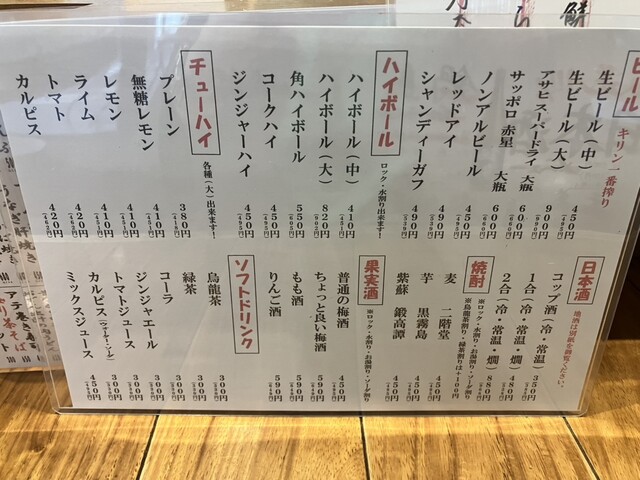 ビール
キリン一番搾り
生ビール（中） 450円
生ビール（大） 900円
アサヒスーパードライ 大瓶 600円
サッポロ赤星 大瓶 600円
ノンアルビール 450円
レッドアイ 490円
シャンディーガフ 490円
ハイボール
ロック・水割り出来ます！
ハイボール（中） 410円
ハイボール（大） 820円
角ハイボール 550円
コークハイ 450円
ジンジャーハイ 450円
チューハイ
各種（大）出来ます！
プレーン 380円
無糖レモン 410円
レモン 410円
ライム 420円
トマト 420円
カルピス 420円
日本酒
地酒は別紙を御覧ください。
コップ酒（冷・常温） 350円
1合（冷・常温・燗） 480円
2合（冷・常温・燗） 880円
焼酎
※ロック・水割り・お湯割り・ソーダ割り
※烏龍茶割り・緑茶割りは＋100円
麦 二階堂 450円
芋 黒霧島 450円
紫蘇 鍛高譚 450円
果実酒
※ロック・水割り・お湯割り・ソーダ割り
普通の梅酒 450円
ちょっと良い梅酒 590円
もも酒 590円
りんご酒 590円
ソフトドリンク
烏龍茶 300円
緑茶 300円
コーラ 300円
ジンジャエール 300円
トマトジュース 300円
カルピス（ウォーター・ソーダ） 300円
ミックスジュース 450円